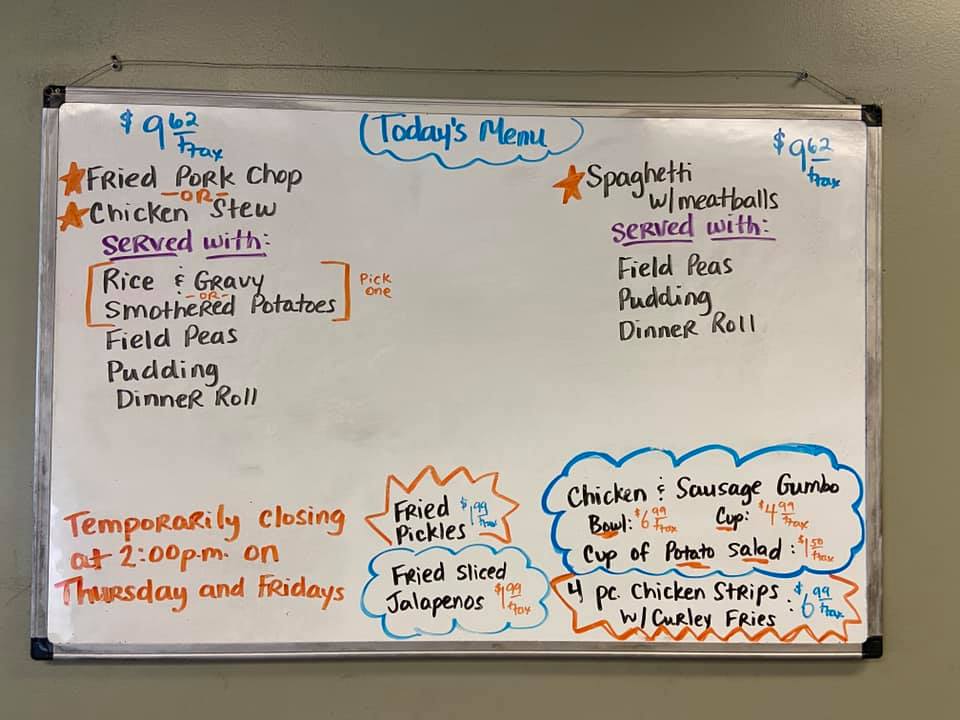 Today's Menu
$9.62
+tax
Fried Pork Chop
-OR-
Chicken Stew
Served with:
Rice & Gravy
-OR-
Smothered Potatoes
Pick
one
Field Peas
Pudding
Dinner Roll
$9.62
+tax
Spaghetti
w/meatballs
Served with:
Field Peas
Pudding
Dinner Roll
Temporarily closing
at 2:00p.m. on
Thursday and Fridays
Fried $1.99
Pickles +tax
Fried Sliced
Jalapenos $1.99 +tax
Chicken & Sausage Gumbo
Bowl: $6.99 +tax Cup: $4.99 +tax
Cup of Potato Salad: $1.50 +tax
4 pc. Chicken Strips : $6.99
w/Curley Fries +tax